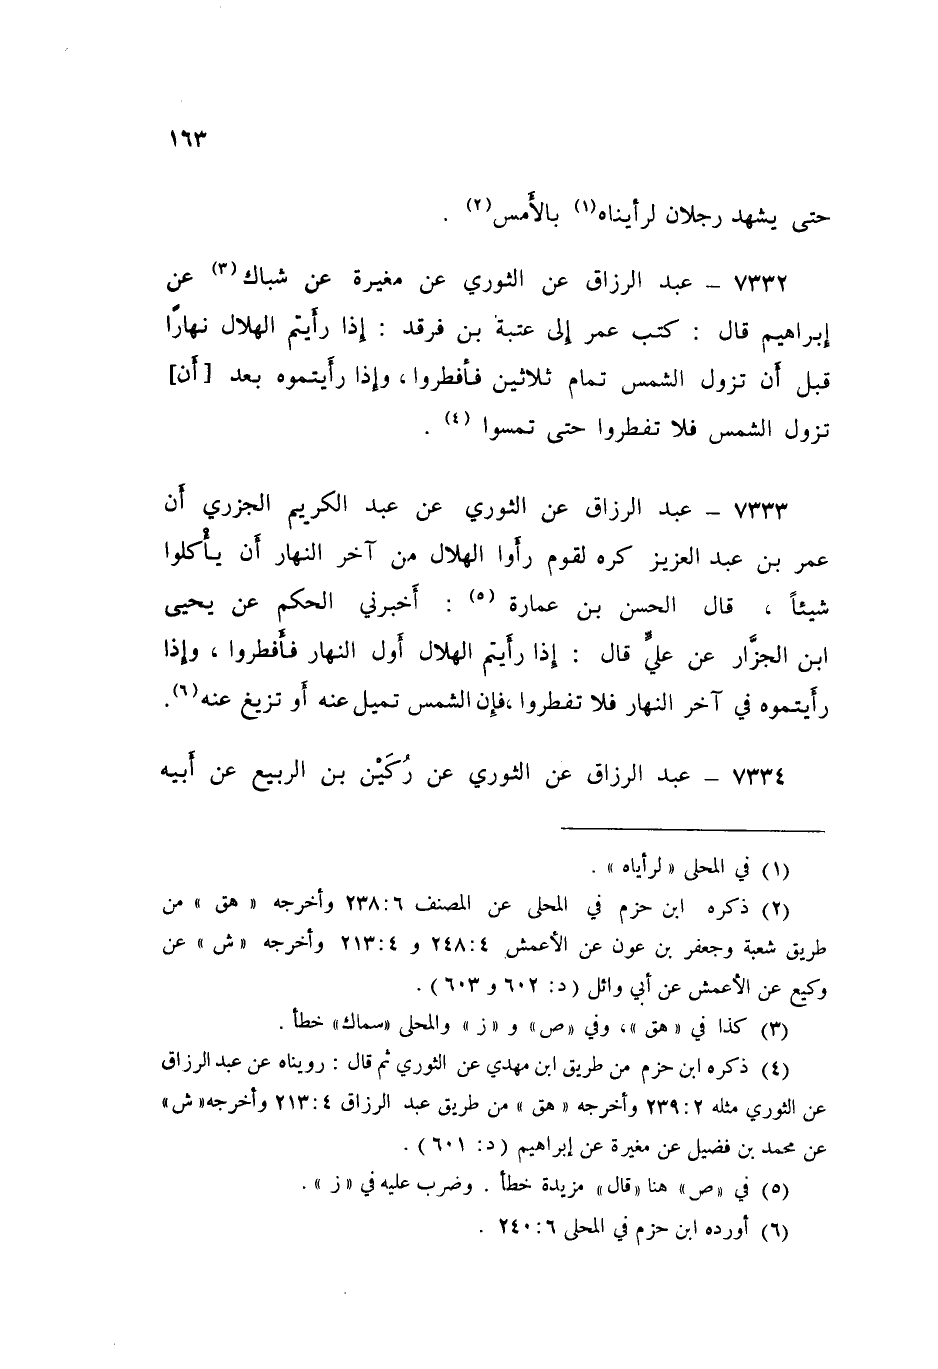 ١٦٣
حتى يشهد رجلان لرأيناه(١) بالأَمس(٢) .
٧٣٣٢ ــ عبد الرزاق عن الثوري عن مغيرة عن شباك(٣) عن
إبراهيم قال : كتب عمر إلى عتبة بن فرقد : إذا رأَيتم الهلال نهارًا
قبل أَن تزول الشمس تمام ثلاثين فأَفطروا ، وإذا رأَيتموه بعد [أَن]
تزول الشمس فلا تفطروا حتى تمسوا (٤) .
٧٣٣٣ ــ عبد الرزاق عن الثوري عن عبد الكريم الجزري أَن
عمر بن عبد العزيز كره لقوم رأَوا الهلال من آخر النهار أَن يأْكلوا
شيئاً ، قال الحسن بن عمارة (٥) : أَخبرني الحكم عن يحيى
ابن الجزَّار عن عليٍّ قال : إذا رأَيتم الهلال أَول النهار فأَفطروا ، وإذا
رأَيتموه في آخر النهار فلا تفطروا ،فإن الشمس تميل عنه أَو تزيغ عنه(٦).
٧٣٣٤ ــ عبد الرزاق عن الثوري عن رُكَيْن بن الربيع عن أَبيه
(١) في المحلى « لرأياه » .
(٢) ذكره ابن حزم في المحلى عن المصنف ٦ : ٢٣٨ وأخرجه « هق » من
طريق شعبة وجعفر بن عون عن الأعمش ٤ : ٢٤٨ و ٤ : ٢١٣ وأخرجه «ش» عن
وكيع عن الأعمش عن أبي وائل ( د: ٦٠٢ و ٦٠٣ ) .
(٣) كذا في « هق »، وفي «ص» و «ز » والمحلى «سماك» خطأ .
(٤) ذكره ابن حزم من طريق ابن مهدي عن الثوري ثم قال : رويناه عن عبد الرزاق
عن الثوري مثله ٢ : ٢٣٩ وأخرجه « هق » من طريق عبد الرزاق ٤ : ٢١٣ وأخرجه«ش»
عن محمد بن فضيل عن مغيرة عن إبراهيم ( د: ٦٠١ ) .
(٥) في «ص» هنا «قال» مزيدة خطأ . وضرب عليه في «ز » .
(٦) أورده ابن حزم في المحلى ٦ : ٢٤٠ .